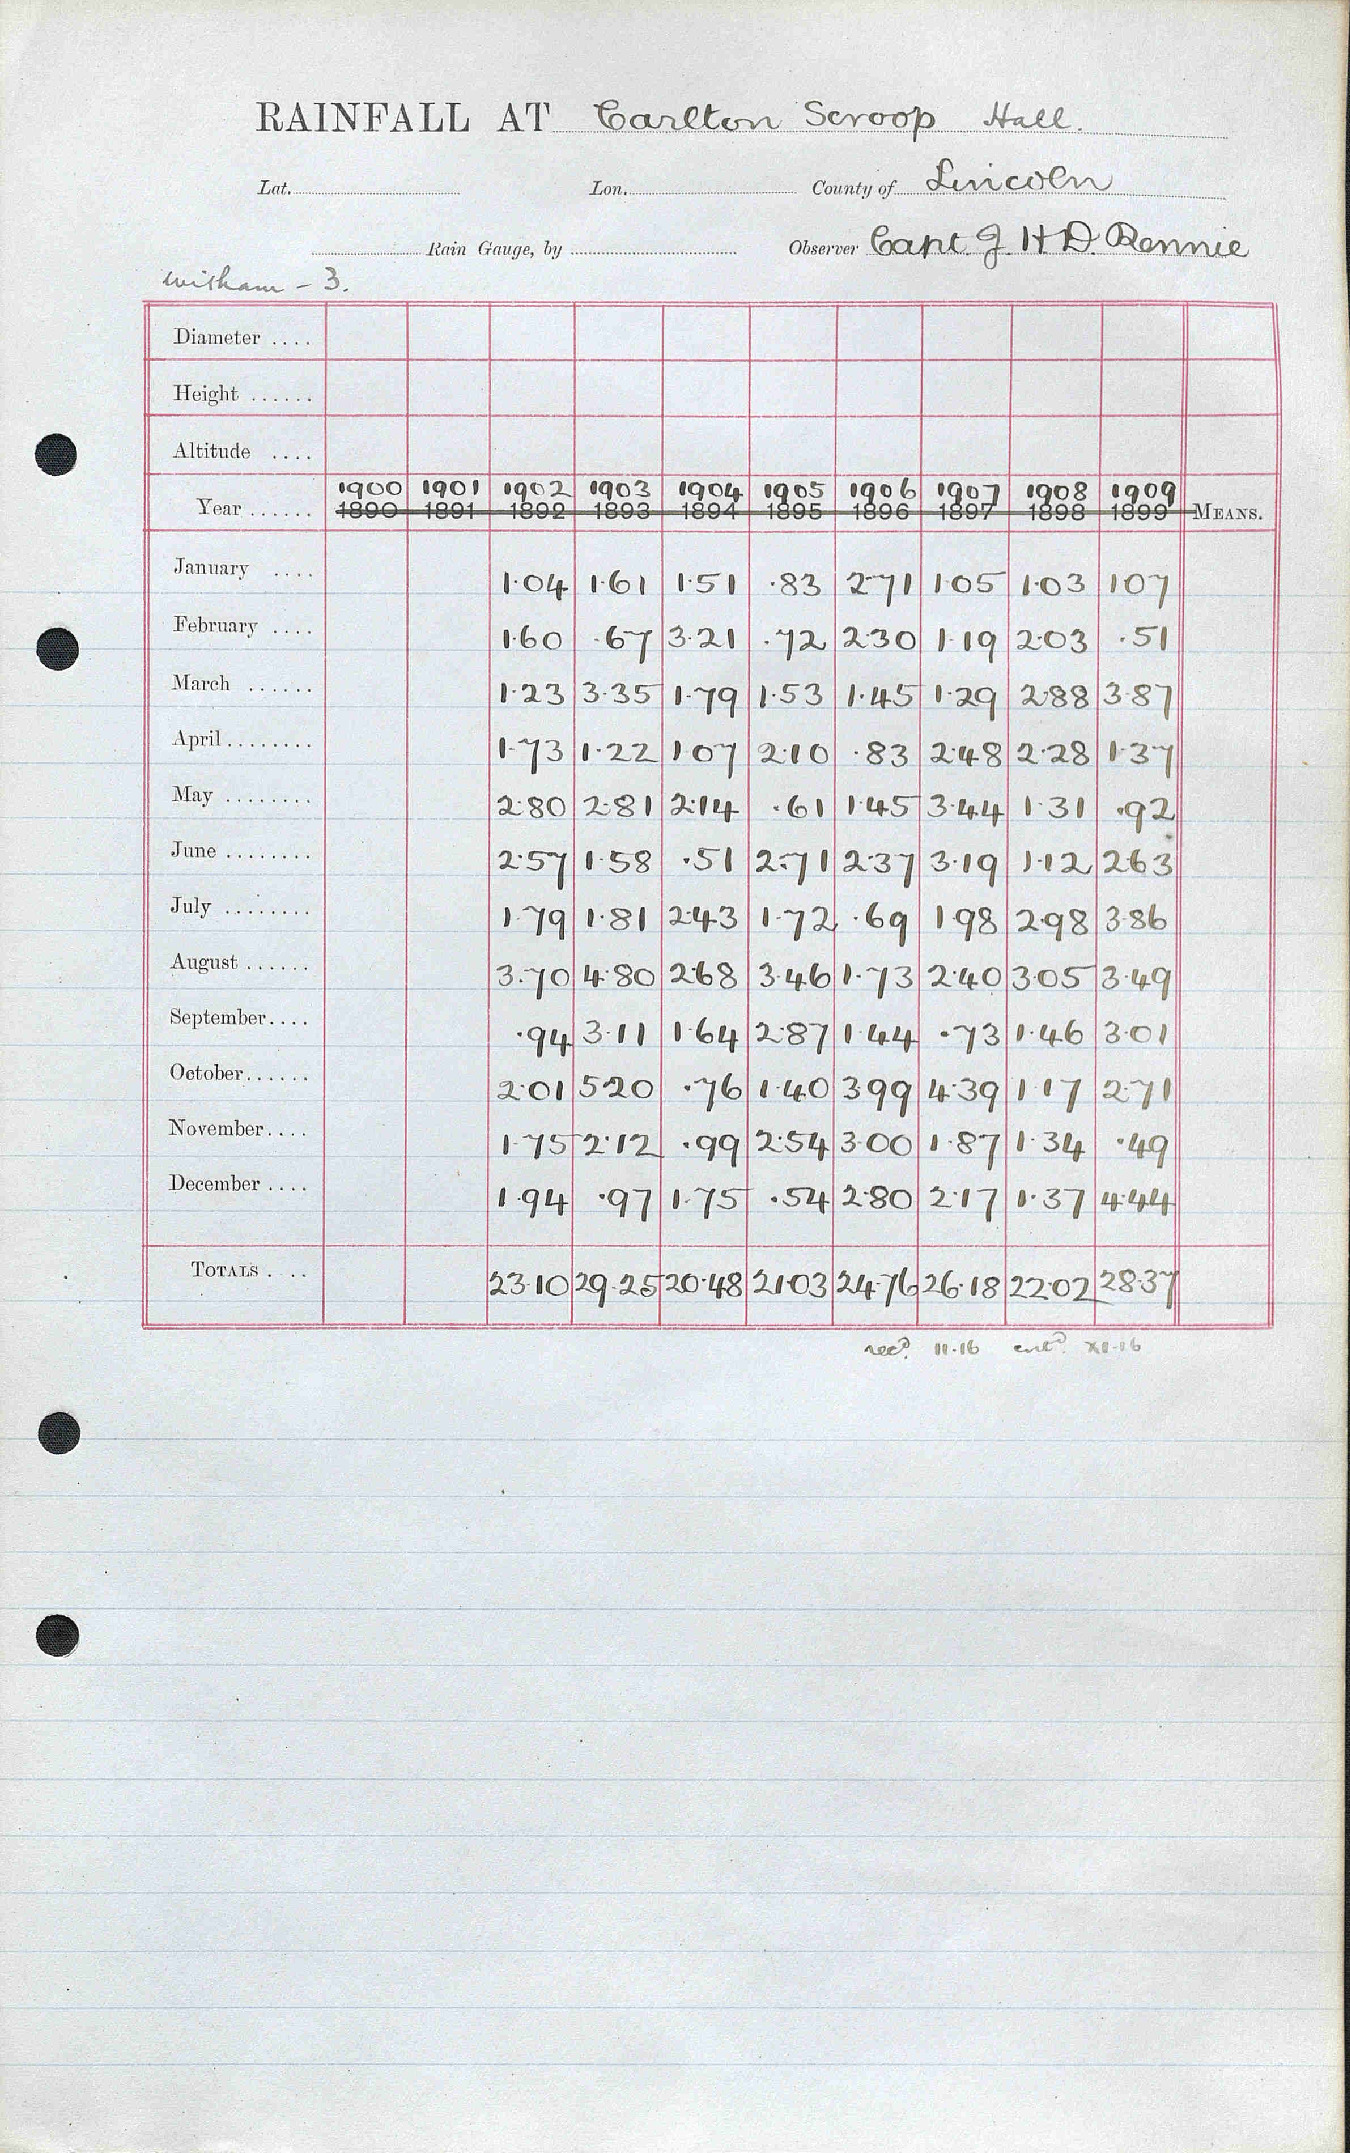 RAINFALL AT Carlton Scroop Hall.
Lat. Lon. County of Lincoln
Rain Gauge, by Observer Capt. J. H. D. Rennie
Witham - 3.
Diameter ....
Height ......
Altitude ....
1900 1901 1902 1903 1904 1905 1906 1907 1908 1909
Year ...... 1890 1891 1892 1893 1894 1895 1896 1897 1898 1899 MEANS.
January .... 1.04 1.61 1.51 .83 2.71 1.05 1.03 1.07
February .... 1.60 .67 3.21 .72 2.30 1.19 2.03 .51
March ...... 1.23 3.35 1.79 1.53 1.45 1.29 2.88 3.87
April ........ 1.73 1.22 1.07 2.10 .83 2.48 2.28 1.37
May ........ 2.80 2.81 2.14 .61 1.45 3.44 1.31 .92
June ........ 2.57 1.58 .51 2.71 2.37 3.19 1.12 2.63
July ........ 1.79 1.81 2.43 1.72 .69 1.98 2.98 3.86
August ...... 3.70 4.80 2.68 3.46 1.73 2.40 3.05 3.49
September.... .94 3.11 1.64 2.87 1.44 .73 1.46 3.01
October...... 2.01 5.20 .76 1.40 3.99 4.39 1.17 2.71
November.... 1.75 2.12 .99 2.54 3.00 1.87 1.34 .49
December .... 1.94 .97 1.75 .54 2.80 2.17 1.37 4.44
TOTALS .... 23.10 29.25 20.48 21.03 24.76 26.18 22.02 28.37
recd. 11.16 entd. XI.16